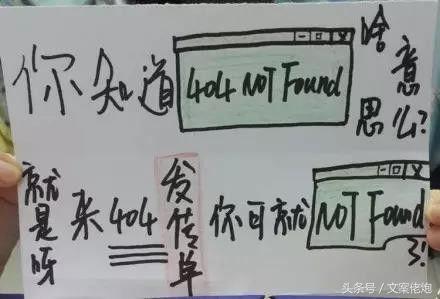 你知道 404 NOT Found 啥意思么?
就是呀来404发传单你可就 NOT Found 了!
头条号 / 文案佬炮